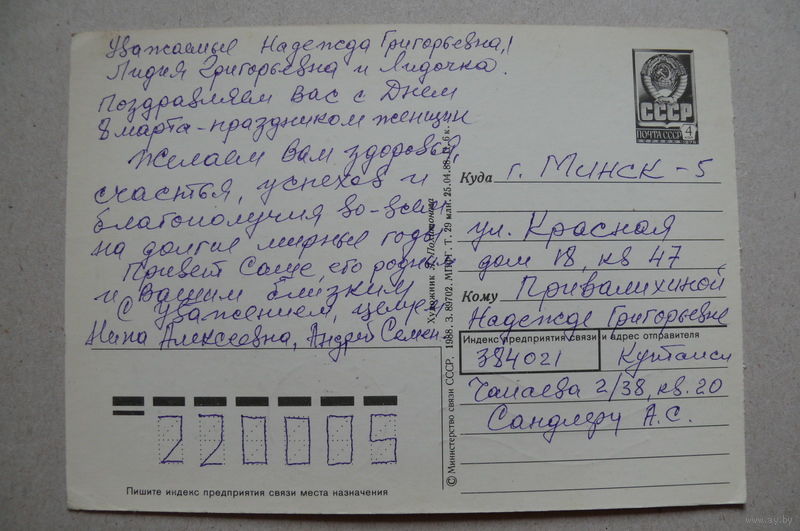 Уважаемые Надежда Григорьевна,
Лидия Григорьевна и Лидочка.
Поздравляем Вас с Днем
8 марта - праздником женщин
Желаем Вам здоровья,
счастья, успехов и
благополучия во всем
на долгие мирные годы.
Привет Саше, его родным
и Вашим близким
С уважением, целуем
Нина Алексеевна, Андрей Семен
220005
Пишите индекс предприятия связи места назначения
© Министерство связи СССР. 1988. З. 89702. МПФГ. Т. 29 млн. 25.04.88. Ц. 6 к.
Художник
СССР
ПОЧТА СССР 4
Куда г. Минск - 5
ул. Красная
дом 18, кв 47
Кому Привалихиной
Надежде Григорьевне
Индекс предприятия связи и адрес отправителя
384021 Кутаиси
Чапаева 2/38, кв. 20
Сандлеру А.С.
www.ay.by